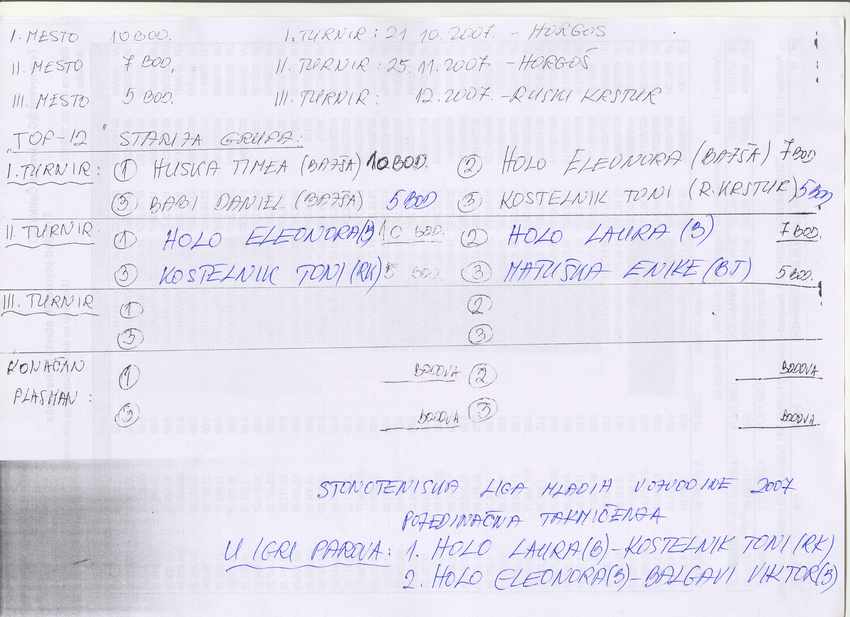 I. MESTO 10 BOD. I. TURNIR: 21.10.2007. - HORGOŠ
II. MESTO 7 BOD. II. TURNIR: 25.11.2007. - HORGOŠ
III. MESTO 5 BOD. III. TURNIR: 12.2007. - RUSKI KRSTUR
"TOP-12" STARIJA GRUPA:
I. TURNIR: 1 HUSKA TIMEA (BAJŠA) 10 BOD. 2 HOLO ELEONORA (BAJŠA) 7 BOD
3 BABI DANIEL (BAJŠA) 5 BOD 3 KOSTELNIK TONI (R. KRSTUR) 5 BOD
II TURNIR: 1 HOLO ELEONORA (B) 10 BOD. 2 HOLO LAURA (B) 7 BOD.
3 KOSTELNIK TONI (RK) 5 BOD. 3 MATUŠKA ENIKE (BT) 5 BOD.
III. TURNIR 1 2
3 3
KONAČAN 1 BODOVA 2 BODOVA
PLASMAN: 3 BODOVA 3 BODOVA
STONOTENISKA LIGA MLADIH VOJVODINE 2007
POJEDINAČNA TAKMIČENJA
U IGRI PAROVA: 1. HOLO LAURA (B) - KOSTELNIK TONI (RK)
2. HOLO ELEONORA (B) - BALGAVI VIKTOR (B)